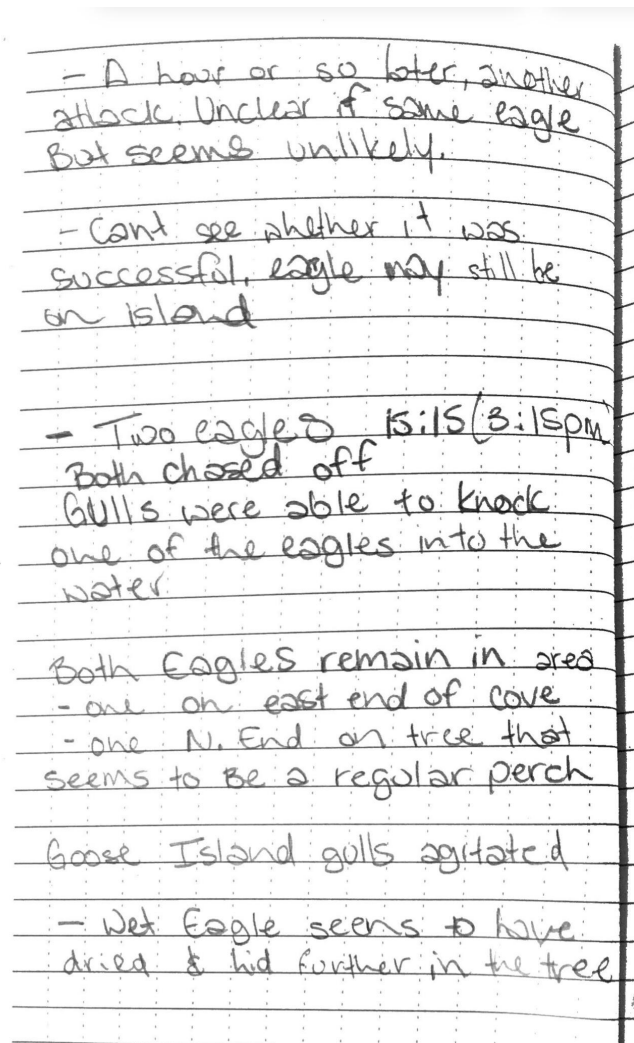 - A hour or so later, another
attack. Unclear if same eagle
But seems unlikely.
- Cant see whether it was
successful, eagle may still be
on island
- Two eagles 15:15 (3:15pm)
Both chased off
Gulls were able to knock
one of the eagles into the
water
Both Eagles remain in area
- one on east end of cove
- one N. End on tree that
seems to Be a regular perch
Goose Island gulls agitated
- Wet Eagle seems to have
dried & hid further in the tree